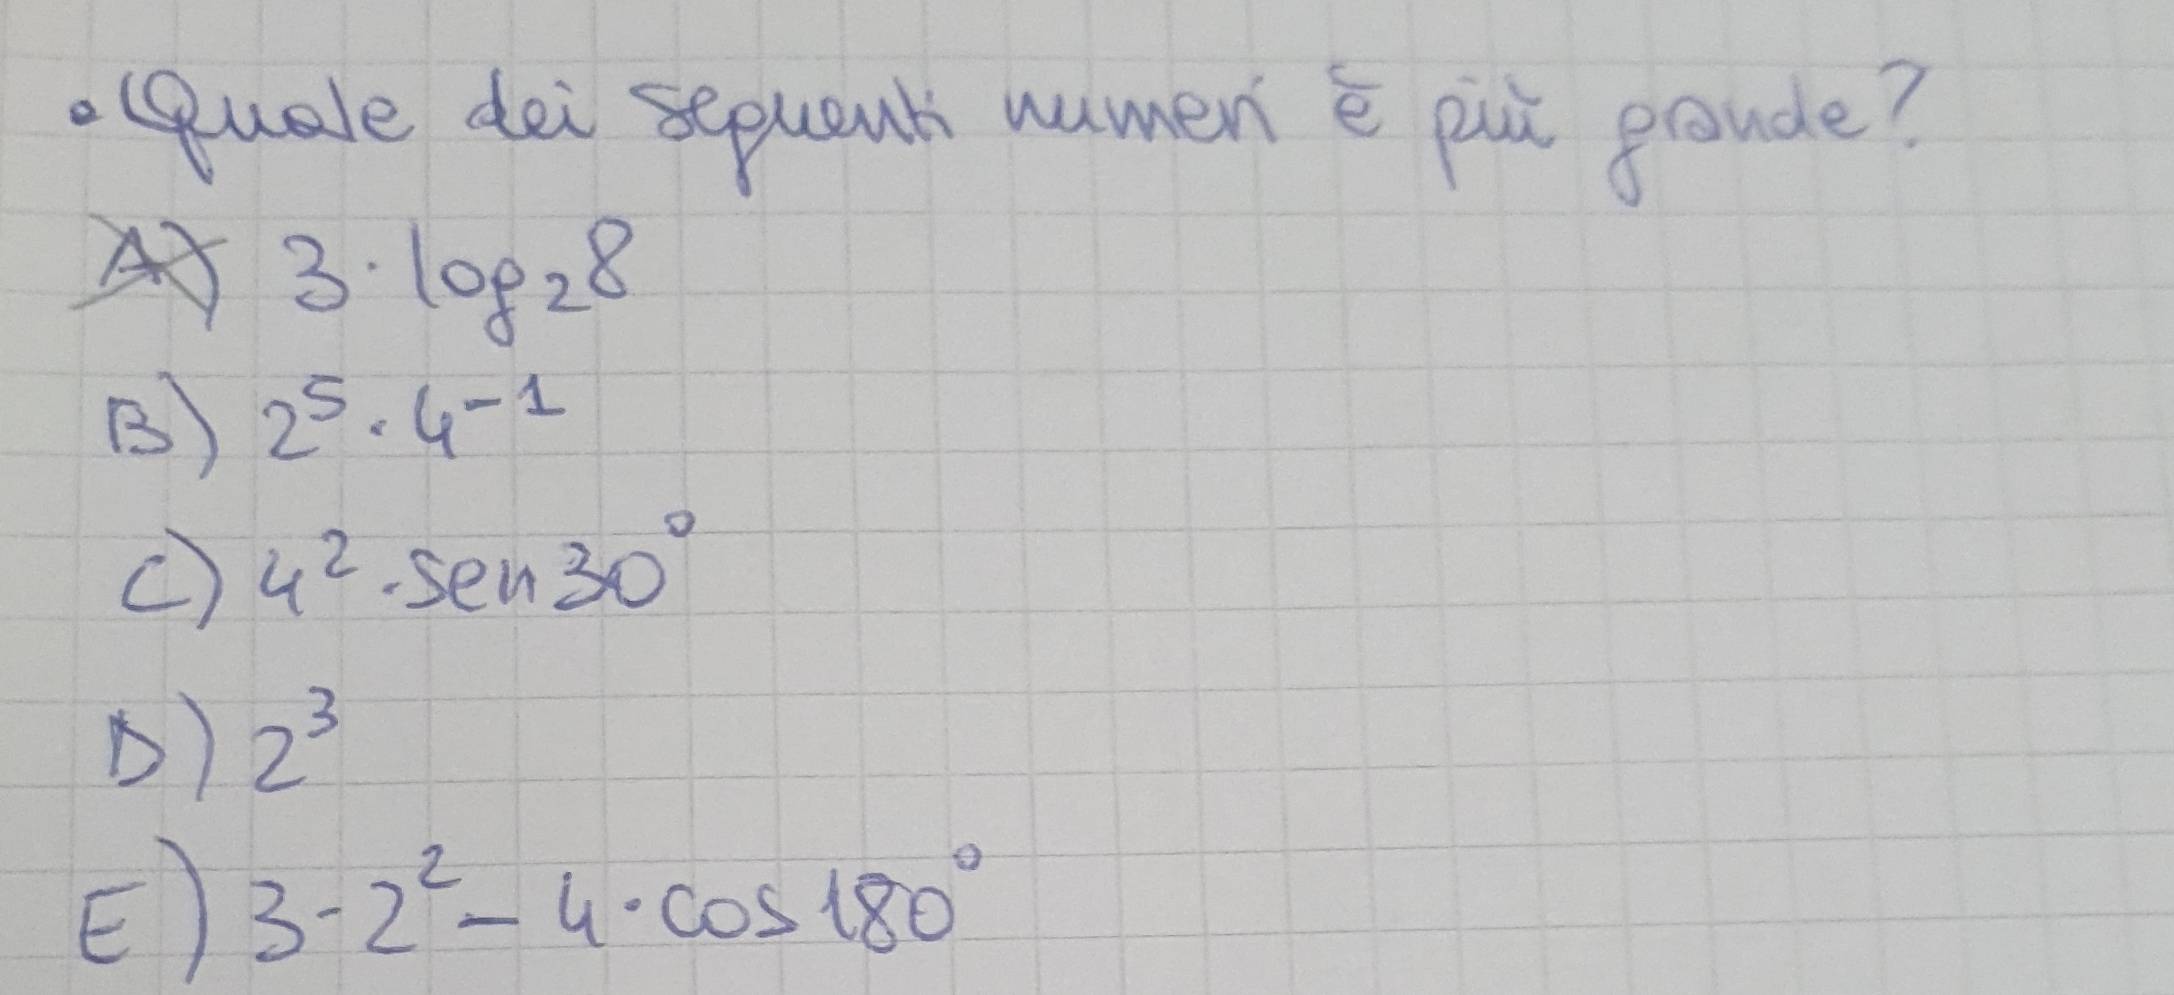 • Quale dei seguenti numeri è più grande?
A) 3 · log₂8
B) 2⁵ · 4⁻¹
C) 4² · sen30°
D) 2³
E) 3 · 2² – 4 · cos180°